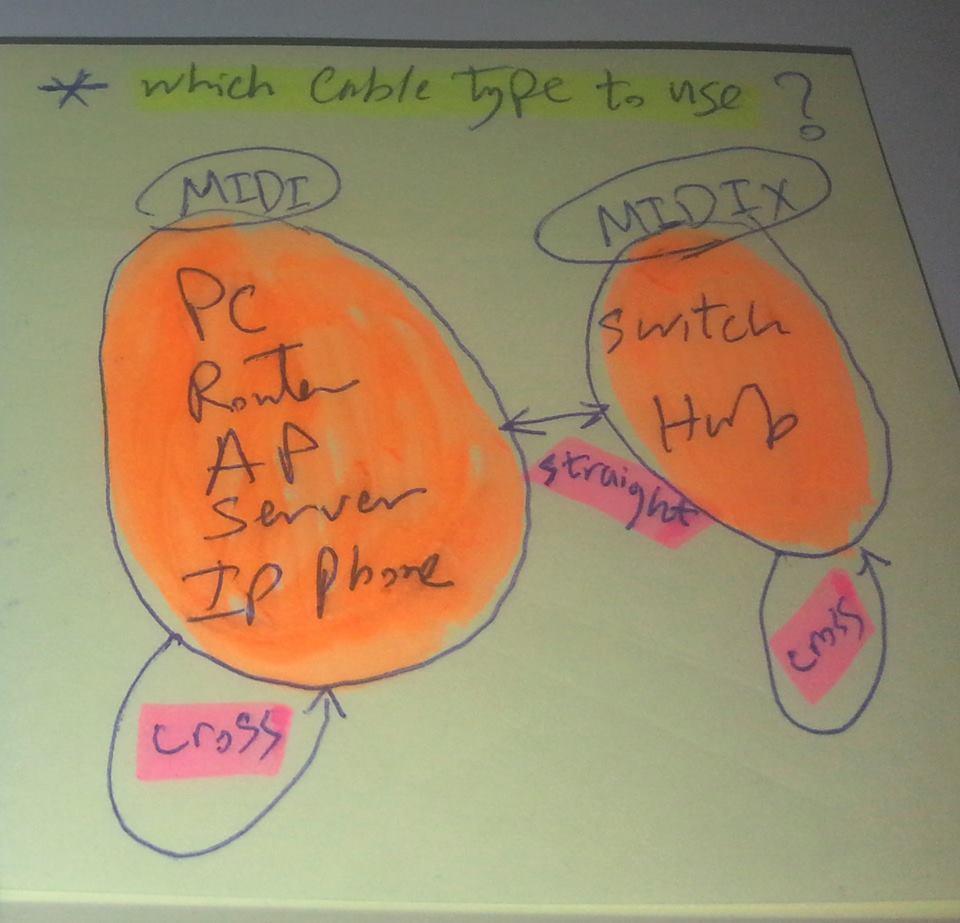 * which Cable Type to use ?
MIDI
PC
Router
AP
Server
IP Phone
cross
MIDIX
switch
Hub
straight
cross